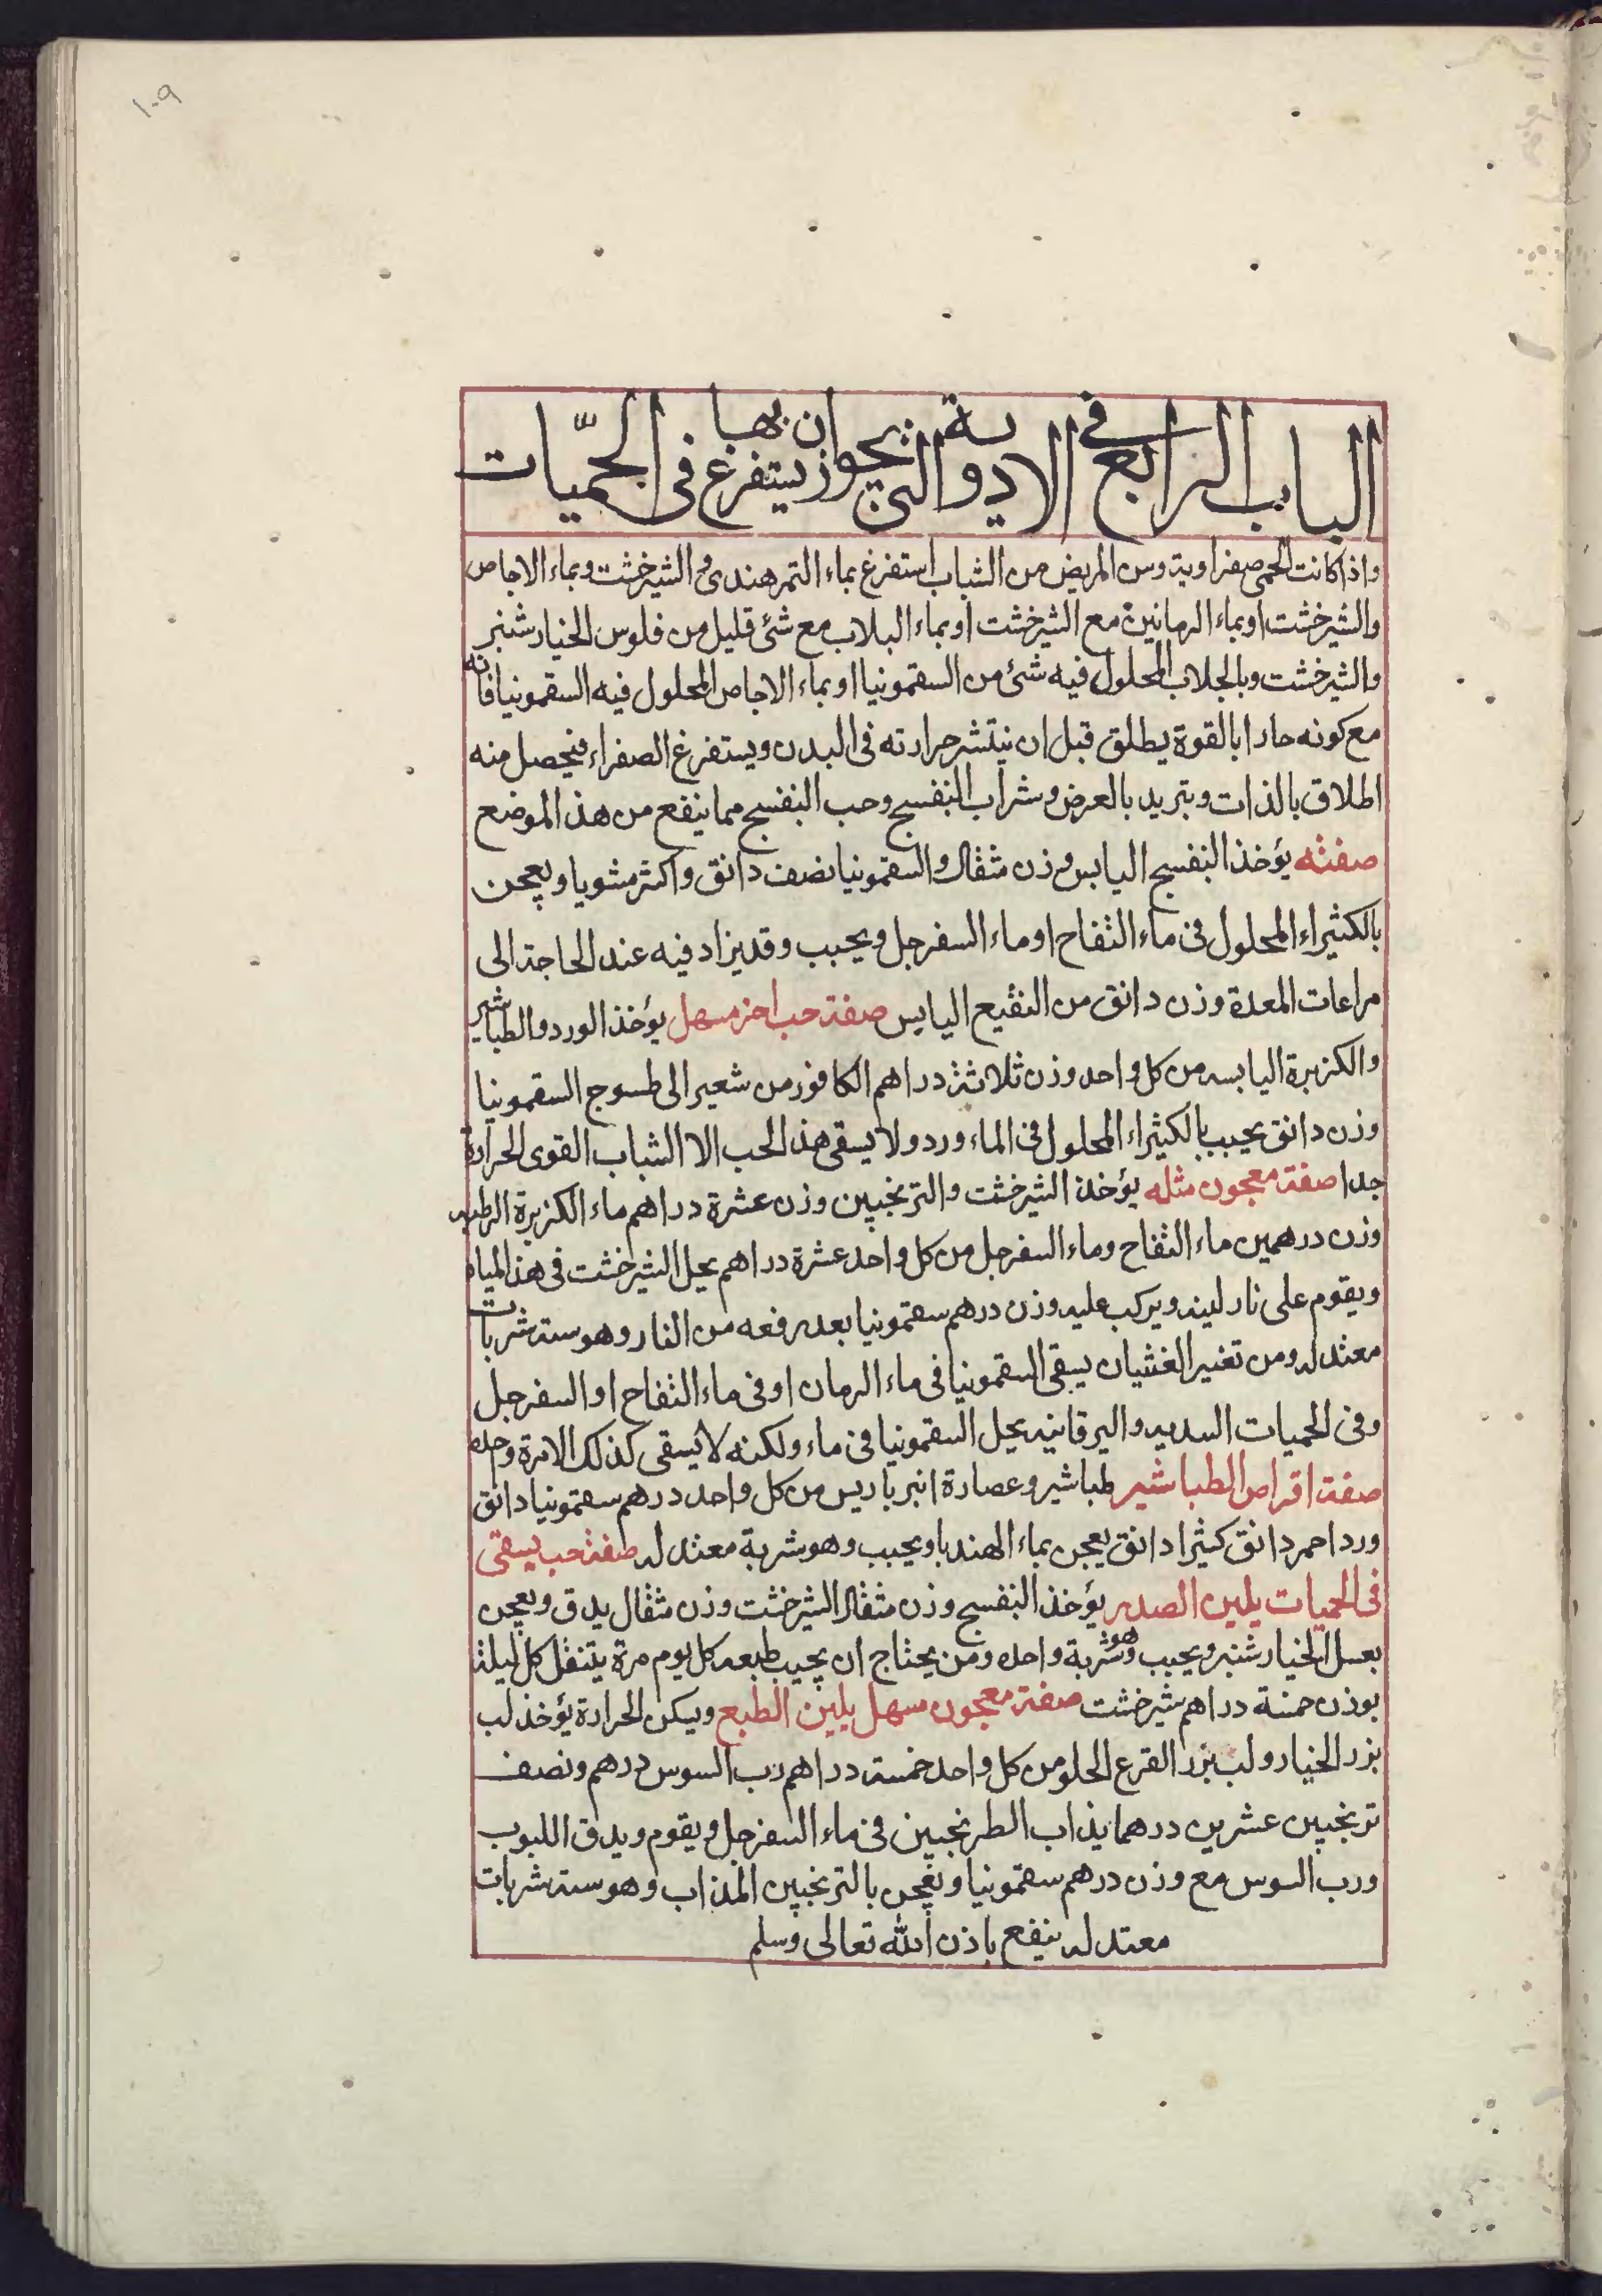 ١٠٩
الباب الرابع في الادوية التي يجوز ان يستفرغ بها في الحمّيات
واذا كانت الحمى صفراوية وسن المريض من الشباب استفرغ بماء التمر هندى والشيرخشت وبماء الاجاص
والشيرخشت او بماء الرمانين مع الشيرخشت او بماء البلاب مع شئ قليل من فلوس الخيار شنبر
والشيرخشت وبالجلاب المحلول فيه شئ من السقمونيا او بماء الاجاص المحلول فيه السقمونيا فانه
مع كونه حارا بالقوة يطلق قبل ان ينتشر حرارته فى البدن ويستفرغ الصفراء فيحصل منه
اطلاق بالذات وتبريد بالعرض وشراب البنفسج وحب البنفسج مما ينفع من هذا الموضع
صفته يؤخذ البنفسج اليابس وزن مثقال والسقمونيا نصف دانق واكثر مشويا ويعجن
بالكثيراء المحلول فى ماء التفاح او ماء السفرجل ويحبب وقد يزاد فيه عند الحاجة الى
مراعات المعدة وزن دانق من النقيع اليابس صفة حب اخر مسهل يؤخذ الورد والطباشير
والكزبرة اليابسه من كل واحد وزن ثلاثة دراهم الكافور من شعير الى طسوج السقمونيا
وزن دانق يحبب بالكثيراء المحلول فى الماء ورد ولا يسقى هذ الحب الا الشباب القوى الحرارة
جدا صفة معجون مثله يؤخذ الشيرخشت والترنجبين وزن عشرة دراهم ماء الكزبرة الرطبه
وزن درهمين ماء التفاح وماء السفرجل من كل واحد عشرة دراهم يحل الشيرخشت فى هذ المياه
ويقوم على نار لينه ويركب عليه وزن درهم سقمونيا بعد رفعه من النار وهو ستة شربات
معتدله ومن تغير الغثيان يسقى السقمونيا فى ماء الرمان او فى ماء التفاح او السفرجل
وفى الحميات السديه واليرقانيه يحل السقمونيا فى ماء ولكنه لا يسقى كذلك الا مرة وحده
صفة اقراص الطباشير طباشير وعصارة انبرباريس من كل واحد درهم سقمونيا دانق
ورد احمر دانق كثيرا دانق يعجن بماء الهندبا ويحبب وهو شربة معتدله صفة حب يسقى
فى الحميات يلين الصدر يؤخذ البنفسج وزن مثقال الشيرخشت وزن مثقال يدق ويعجن
بعسل الخيار شنبر ويحبب وهو شربة واحده ومن يحتاج ان يجيب طبعه كل يوم مرة يتنقل كل ليلة
بوزن خمسة دراهم شيرخشت صفة معجون سهل يلين الطبع ويسكن الحرارة يؤخذ لب
بزر الخيار ولب بزر القرع الحلو من كل واحد خمسة دراهم رب السوس درهم ونصف
ترنجبين عشرين درهما يذاب الطرنجبين فى ماء السفرجل ويقوم ويدق اللبوب
ورب السوس مع وزن درهم سقمونيا ويعجن بالترنجبين المذاب وهو ستة شربات
معتدله ينفع باذن الله تعالى وسلم